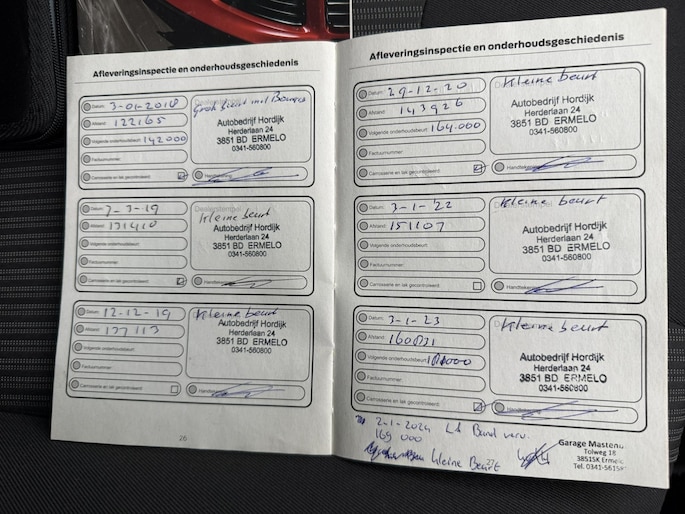 Afleveringsinspectie en onderhoudsgeschiedenis
Datum: 3-01-2018
Afstand: 122165
Volgende onderhoudsbeurt: 142000
Factuurnummer:
Carrosserie en lak gecontroleerd:
Dealerstempel
Autobedrijf Hordijk
Herderlaan 24
3851 BD ERMELO
0341-560800
Handtekening
Datum: 7-3-19
Afstand: 131410
Volgende onderhoudsbeurt:
Factuurnummer:
Carrosserie en lak gecontroleerd:
Kleine beurt
Autobedrijf Hordijk
Herderlaan 24
3851 BD ERMELO
0341-560800
Handtekening
Datum: 12-12-19
Afstand: 137113
Volgende onderhoudsbeurt:
Factuurnummer:
Carrosserie en lak gecontroleerd:
Kleine beurt
Autobedrijf Hordijk
Herderlaan 24
3851 BD ERMELO
0341-560800
Handtekening
26
Afleveringsinspectie en onderhoudsgeschiedenis
Datum: 29-12-20
Afstand: 143926
Volgende onderhoudsbeurt: 164.000
Factuurnummer:
Carrosserie en lak gecontroleerd:
Kleine beurt
Autobedrijf Hordijk
Herderlaan 24
3851 BD ERMELO
0341-560800
Handtekening
Datum: 3-1-22
Afstand: 151107
Volgende onderhoudsbeurt:
Factuurnummer:
Carrosserie en lak gecontroleerd:
Kleine beurt
Autobedrijf Hordijk
Herderlaan 24
3851 BD ERMELO
0341-560800
Handtekening
Datum: 3-1-23
Afstand: 160831
Volgende onderhoudsbeurt:
Factuurnummer:
Carrosserie en lak gecontroleerd:
Kleine beurt
Autobedrijf Hordijk
Herderlaan 24
3851 BD ERMELO
0341-560800
Handtekening
2-1-2024 LA Band verv.
169 000
Kleine Beurt
27
Garage Mastenb
Tolweg 18
3851SK Ermel
Tel. 0341-5615